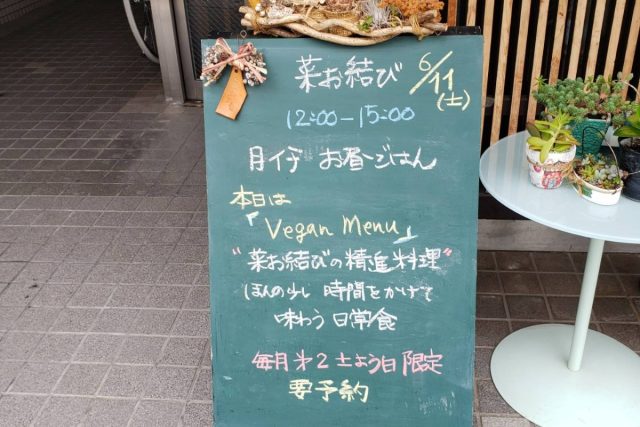 菜お結び 6/11(土)
12:00-15:00
月イチ お昼ごはん
本日は
「Vegan Menu」
"菜お結びの精進料理"
ほんの少し 時間をかけて
味わう 日常食
毎月才2土よう日限定
要予約